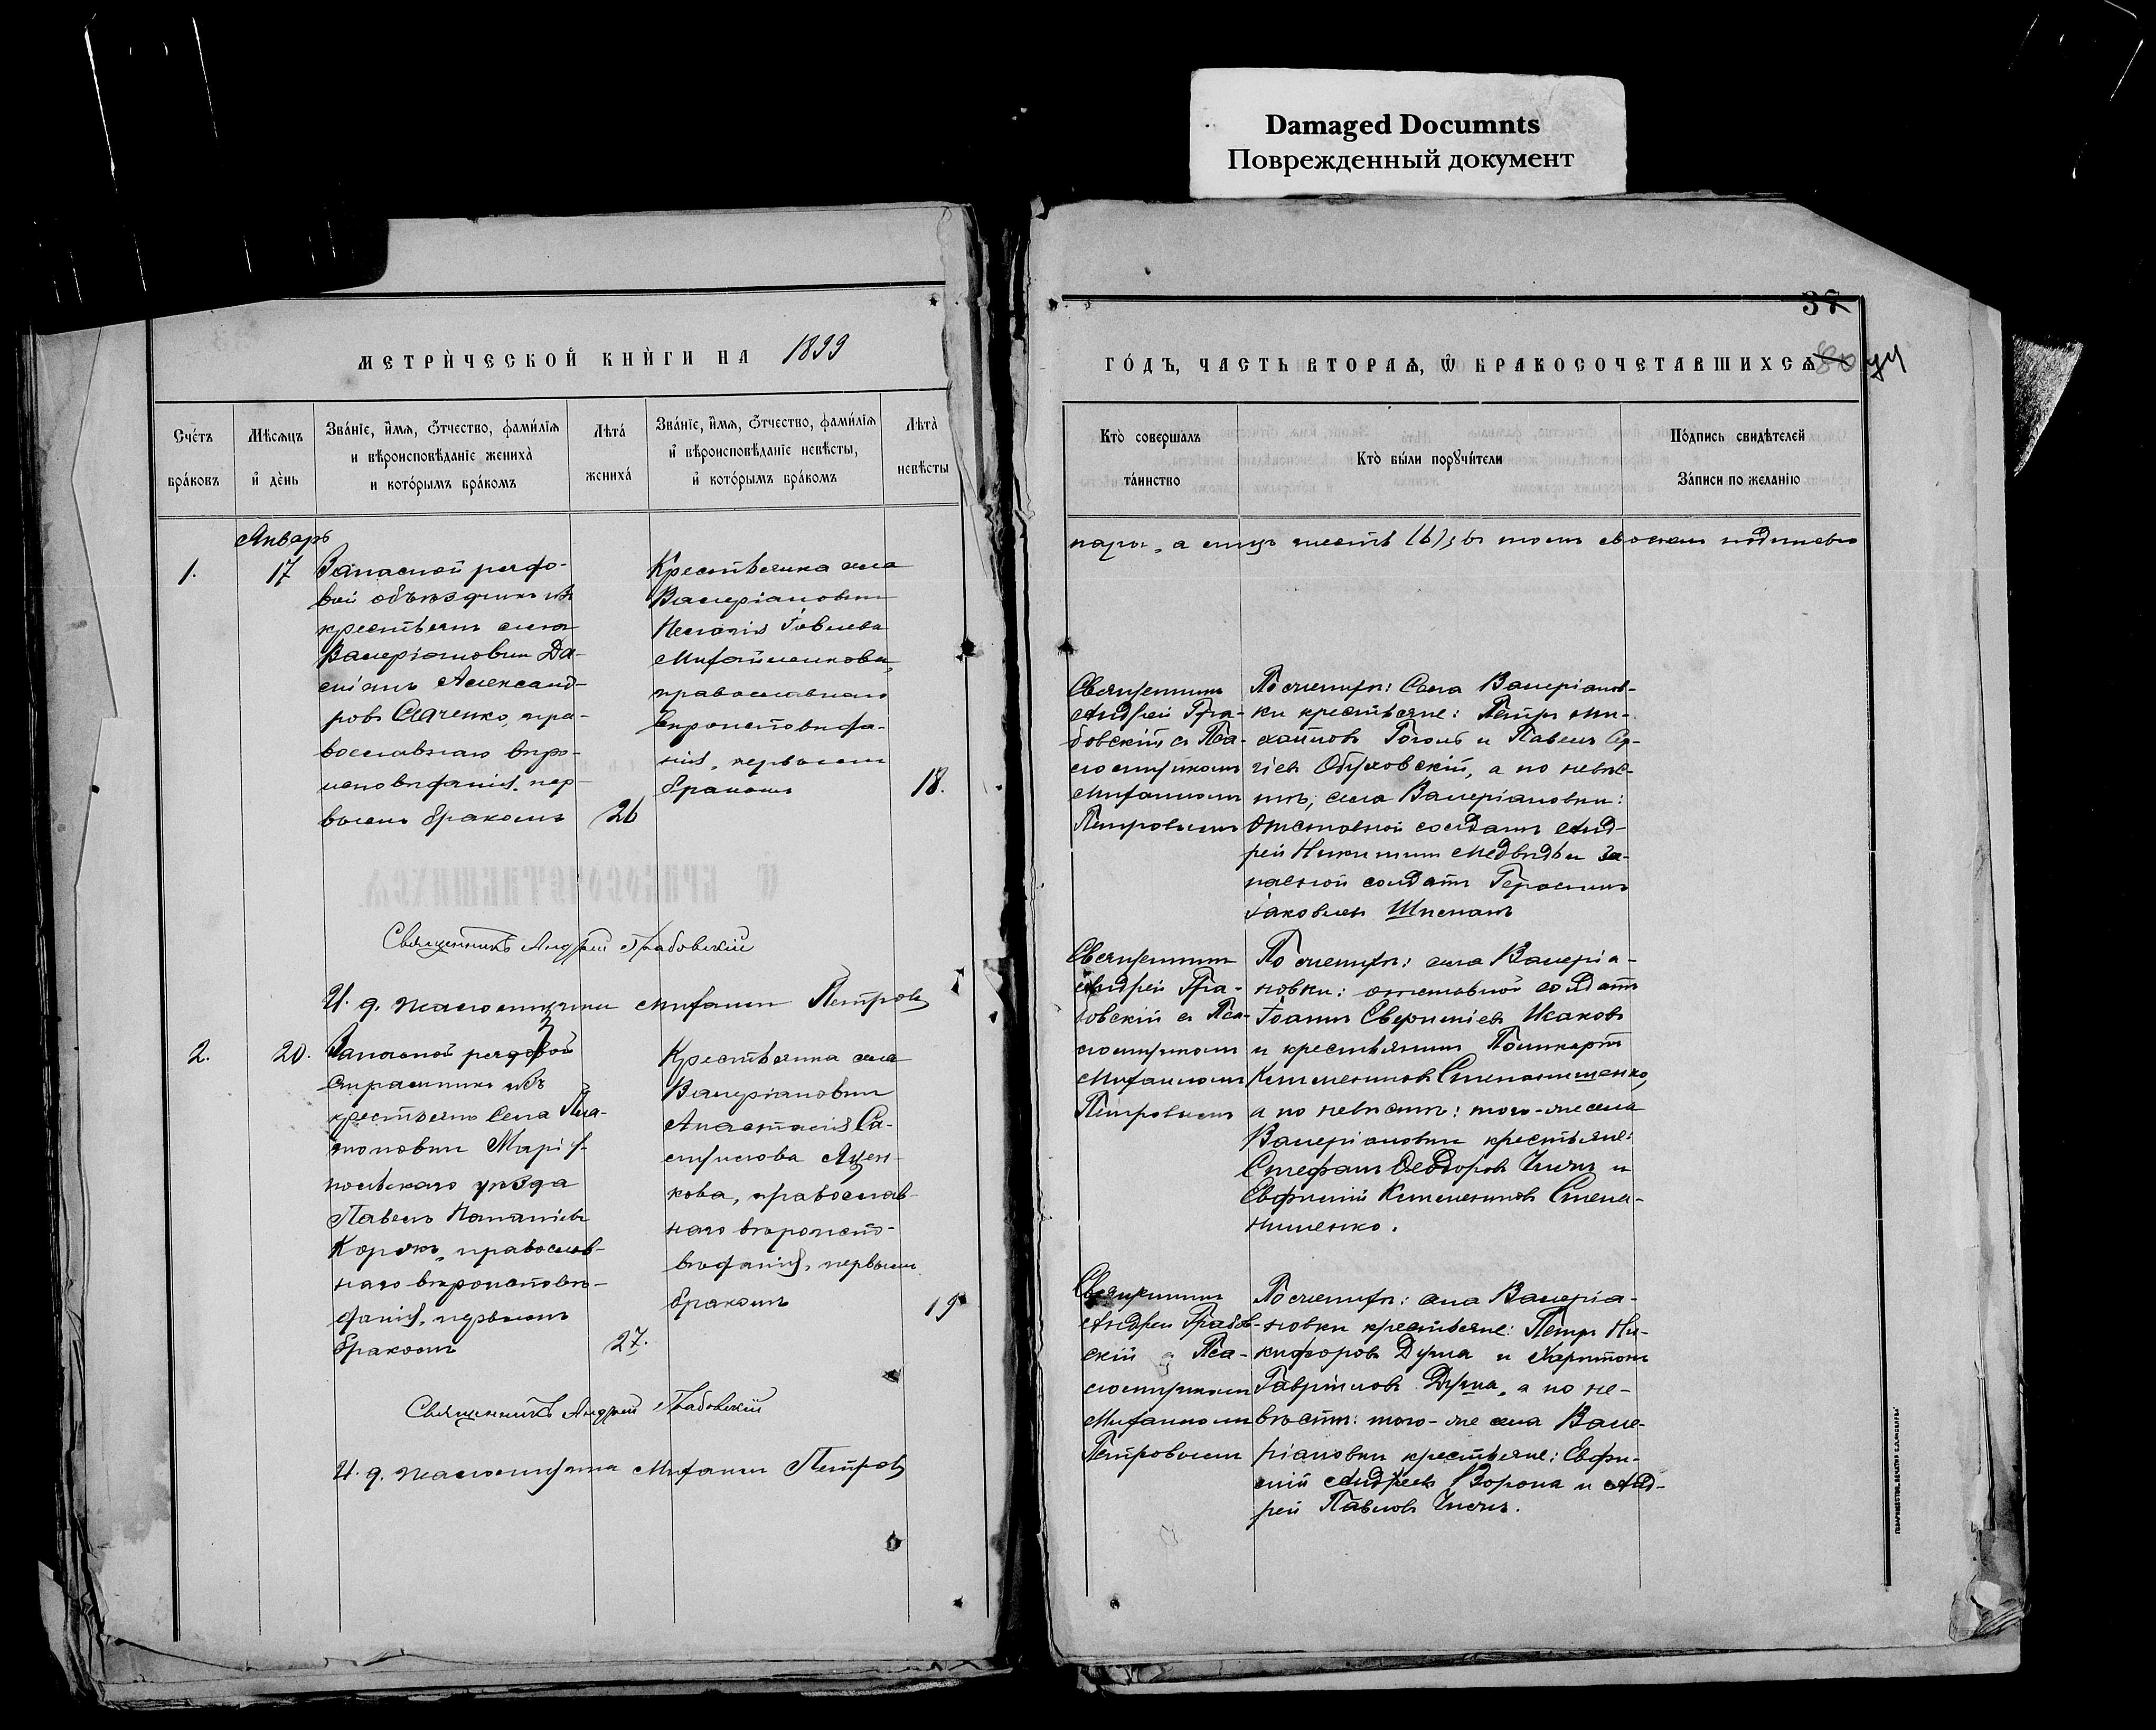 Damaged Documnts
Поврежденный документ
МЕТРИЧЕСКОЙ КНИГИ НА 1899
Счетъ браковъ
Мѣсяцъ и день
Званіе, имя, отчество, фамилія
и вѣроисповѣданіе жениха
и которымъ бракомъ
Лѣта жениха
Званіе, имя, отчество, фамилія
и вѣроисповѣданіе невѣсты,
и которымъ бракомъ
Лѣта невѣсты
Январь
1.
17
Запасной рядо-
вой объѣздчикъ изъ
крестьянъ села
Валеріановки Да-
міанъ Александ-
ровъ пра-
вославнаго вѣро-
исповѣданія, пер-
вымъ бракомъ
26
Крестьянка села
Валеріановки
Пелагія Іовлева
Михайленкова,
православнаго
вѣроисповѣда-
нія, первымъ
бракомъ
18.
Священникъ Андрей Грабовскій
И. д. псаломщика Михаилъ Петровъ
2.
20.
Запасной рядовой
изъ
крестьянъ села Пла-
тоновки Маріу-
польскаго уѣзда
Павелъ
православ-
наго вѣроисповѣ-
данія, первымъ
бракомъ
27.
Крестьянка села
Валеріановки
Анастасія Са-
мулова Яцен-
кова, православ-
наго вѣроиспо-
вѣданія, первымъ
бракомъ
19
Священникъ Андрей Грабовскій
И. д. псаломщика Михаилъ Петровъ
37
ГОДЪ, ЧАСТЬ ВТОРАЯ, Ѿ БРАКОСОЧЕТАВШИХСЯ
Кто совершалъ таинство
Кто были поручители
Подпись свидѣтелей
Записи по желанію
а лицъ шесть (6) въ томъ
Священникъ
Андрей Гра-
бовскій съ Пса-
ломщикомъ
Михаиломъ
Петровымъ
По женихѣ: села Валеріанов-
ки крестьяне: Петръ Ми-
хайловъ Гоголь и Павелъ Сер-
гіевъ Обуховскій, а по невѣс-
тѣ; села Валеріановки:
отставной солдатъ Анд-
рей Никитинъ Медвѣдь и за-
пасной солдатъ Герасимъ
Іаковлевъ
Священникъ
Андрей Гра-
бовскій съ Пса-
ломщикомъ
Михаиломъ
Петровымъ
По женихѣ: села Валеріа-
новки: отставной солдатъ
Іоаннъ Исаковъ
и крестьянинъ Поликарпъ
Климентовъ Степанишенко,
а по невѣстѣ: того-же села
Валеріановки крестьяне:
Стефанъ Ѳеодоровъ Чижъ и
Евфимій Климентовъ Степа-
нишенко.
Священникъ
Андрей Грабов-
скій съ Пса-
ломщикомъ
Михаиломъ
Петровымъ
По женихѣ: села Валеріа-
новки крестьяне: Петръ Ни-
кифоровъ Дума и Харитонъ
Гавриловъ Дума, а по не-
вѣстѣ: того-же села Вале-
ріановки крестьяне: Евфи-
мій Андреевъ Ворона и Анд-
рей Павловъ Чижъ.